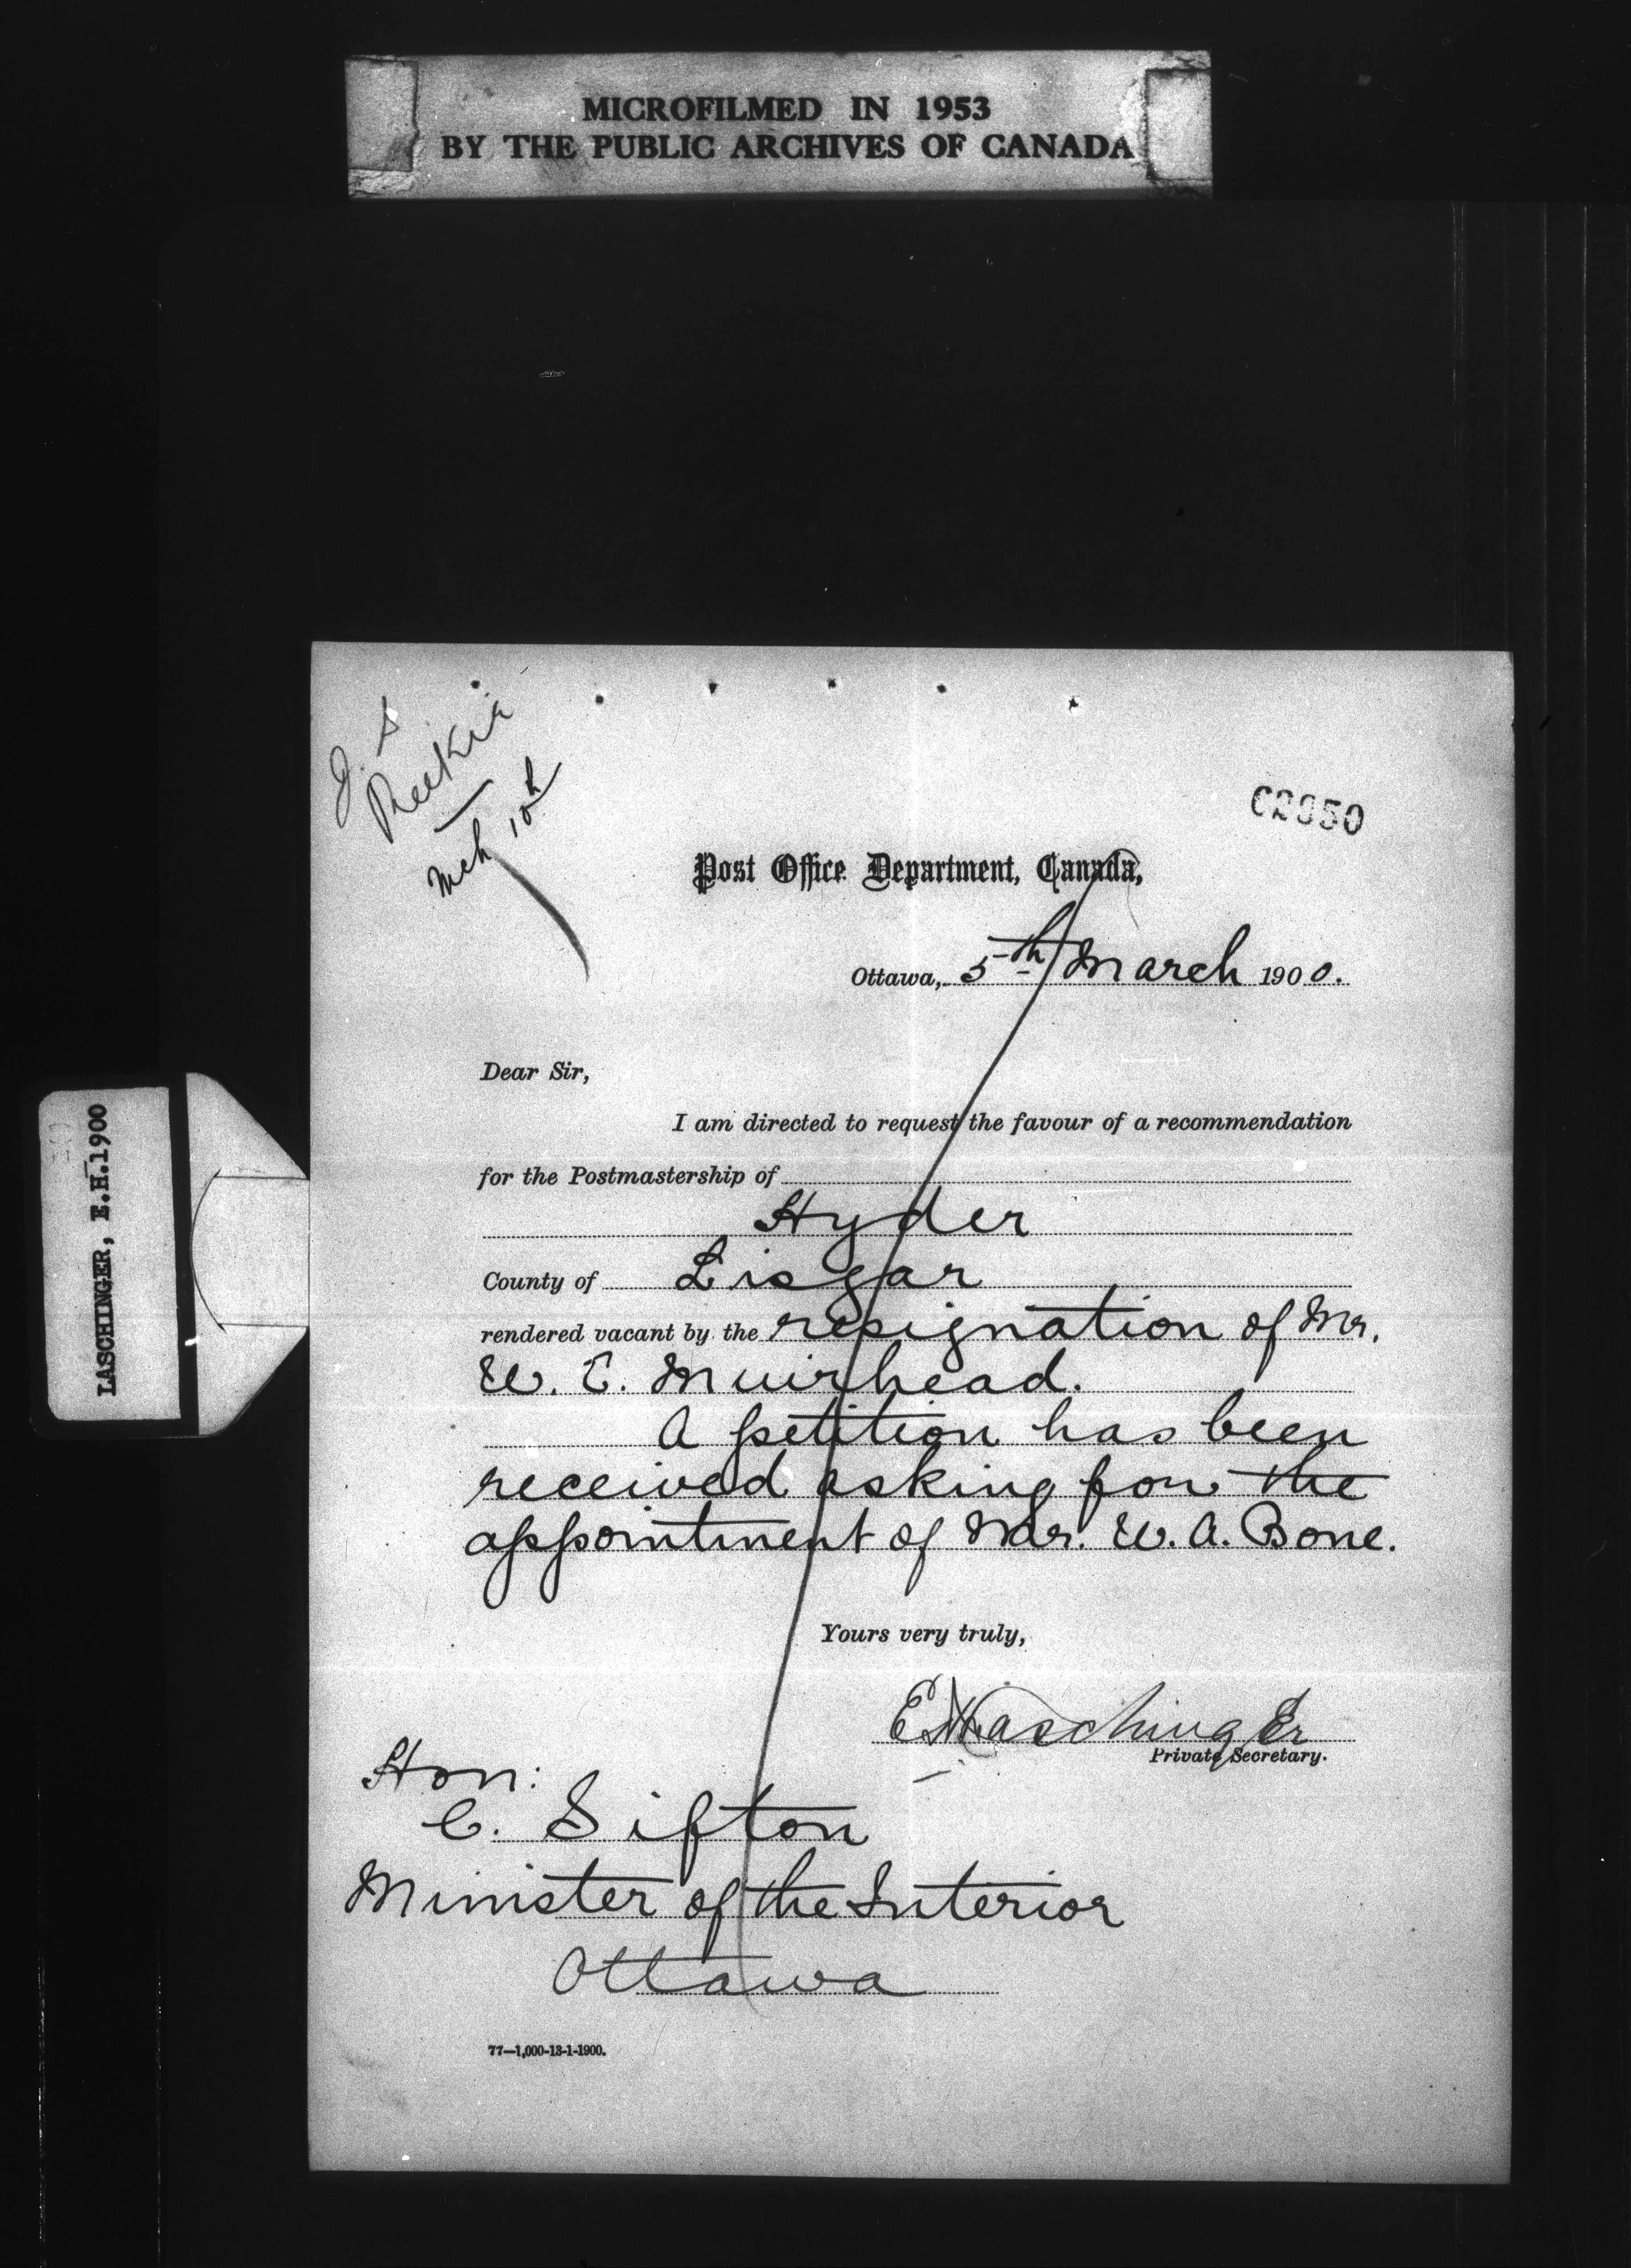 MICROFILMED IN 1953
BY THE PUBLIC ARCHIVES OF CANADA
LASCHINGER, E.H. 1900
J. S
Reekie
Mch 10th
Post Office Department, Canada,
Ottawa, 5th March 1900.
Dear Sir,
I am directed to request the favour of a recommendation
for the Postmastership of
Hyder
County of Lisgar
rendered vacant by the resignation of Mr.
W. C. Muirhead.
A petition has been
received asking for the
appointment of Mr. W. A. Bone.
Yours very truly,
E H Laschinger
Private Secretary.
Hon:
C. Sifton
Minister of the Interior
Ottawa
77—1,000-13-1-1900.